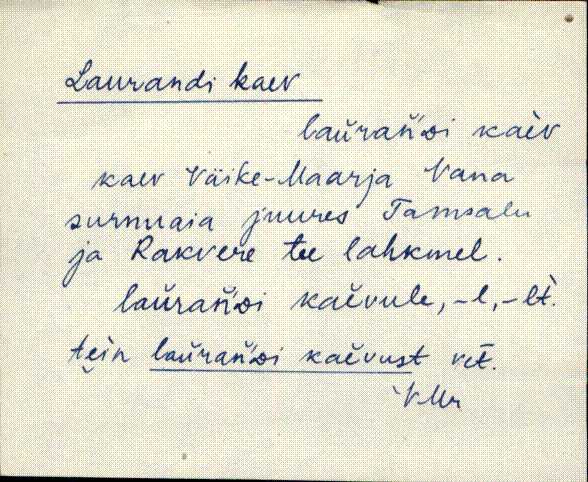 Laurandi kaev
laŭrań'ᴅi kaèv
kaev Väike-Maarja Vana
surnuaia juures Tamsalu
ja Rakvere tee lahkmel.
laŭrań'ᴅi kaĕvule, -l, -lt̀.
tèi̮n laŭrań'ᴅi kaĕvust vet.
VMr